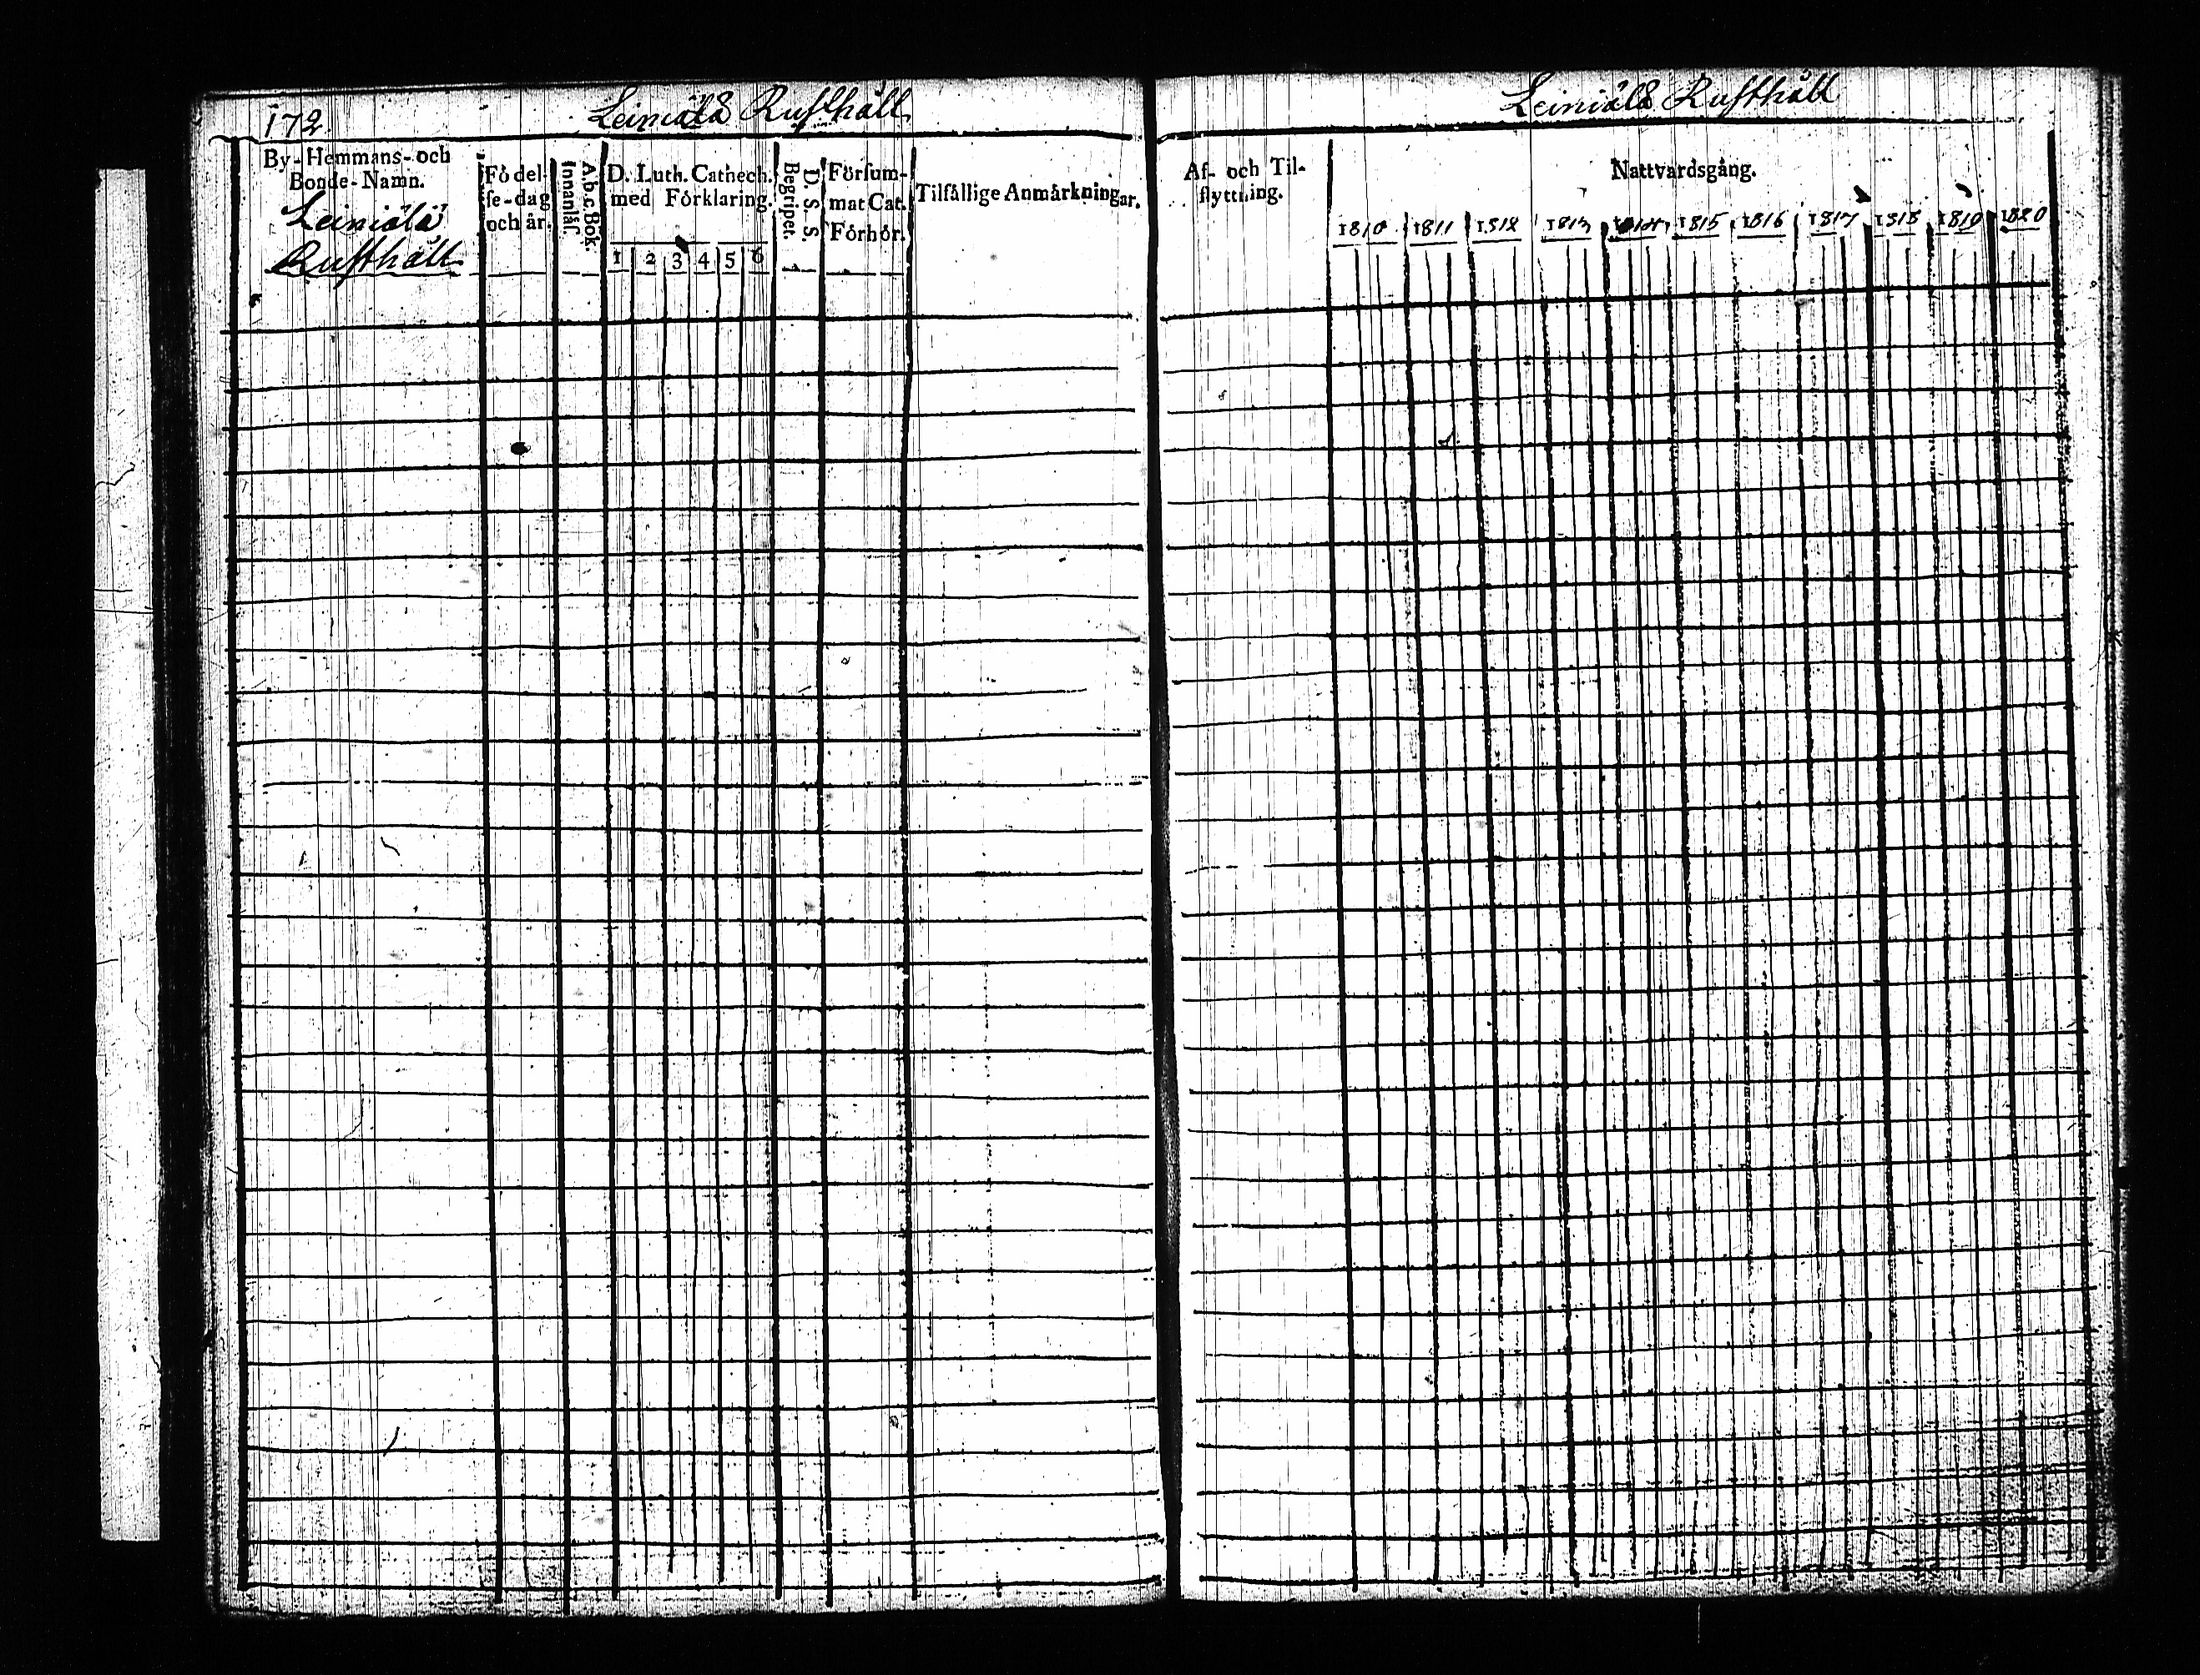 172
Leiniälä Rusthåll
Leiniälä Rusthåll
By-Hemmans-och
Bonde-Namn.
Leiniälä
Rusthåll
Födel-
se-dag
och år.
Innanläs.
A.b.c.Bok.
D. Luth. Cathech.
med Förklaring.
1 2 3 4 5 6
Begripet.
D. S. S.
Försum-
mat Cat.
Förhör.
Tilfällige Anmärkningar.
Af- och Til-
flyttning.
Nattvardsgång.
1810 1811 1812 1813 1814 1815 1816 1817 1818 1819 1820